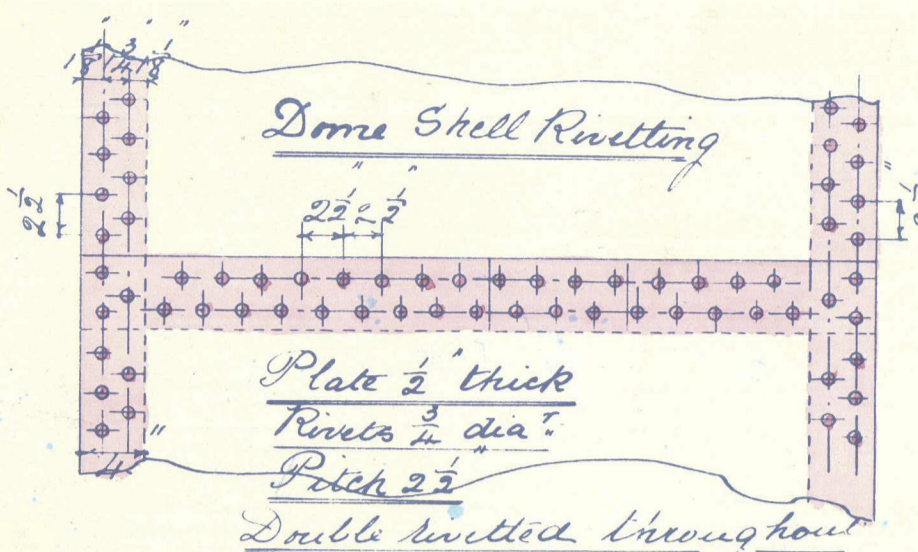 1 1/8" 1 3/4" 1 1/8"
Dome Shell Rivetting
2 1/2" 2 1/2"
2 1/2
2 1/2"
Plate 1/2" thick
Rivets 3/4" diaʳ.
Pitch 2 1/2"
4"
Double rivetted throughout